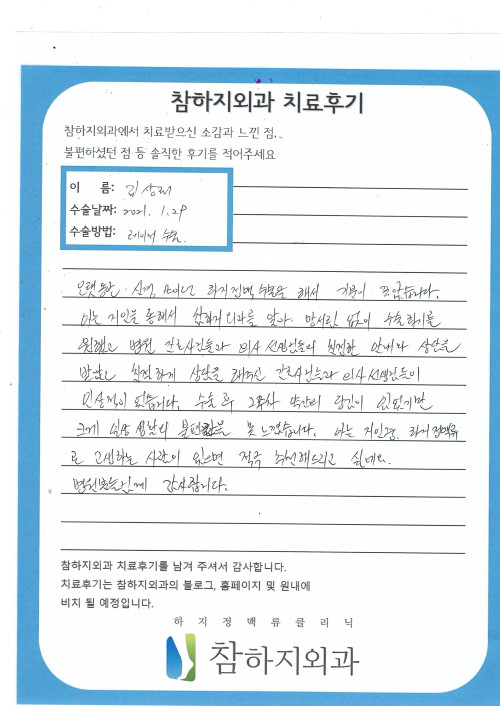 참하지외과 치료후기
참하지외과에서 치료받으신 소감과 느낀 점,
불편하셨던 점 등 솔직한 후기를 적어주세요
이 름: 김상래
수술날짜: 2021. 1. 29
수술방법: 레이저 수술
오랫동안 신경 쓰이던 하지정맥 수술을 해서 기분이 좋았습니다.
아는 지인을 통해서 참하지외과를 알아 망서림 없이 수술하기를
원했고 병원 간호사님들과 의사선생님들의 친절한 안내나 상담을
받았고 친절하게 상담을 해주신 간호사님들과 의사선생님들이
인상적이었습니다. 수술 후 2주차 약간의 당김이 있었지만
크게 일상생활의 불편함을 못느꼈습니다. 아는 지인중 하지정맥류
로 고생하는 사람이 있으면 적극 추천해드리고 싶네요.
감사합니다.
참하지외과 치료후기를 남겨 주셔서 감사합니다.
치료후기는 참하지외과의 블로그, 홈페이지 및 원내에
비치 될 예정입니다.
하지정맥류클리닉
참하지외과